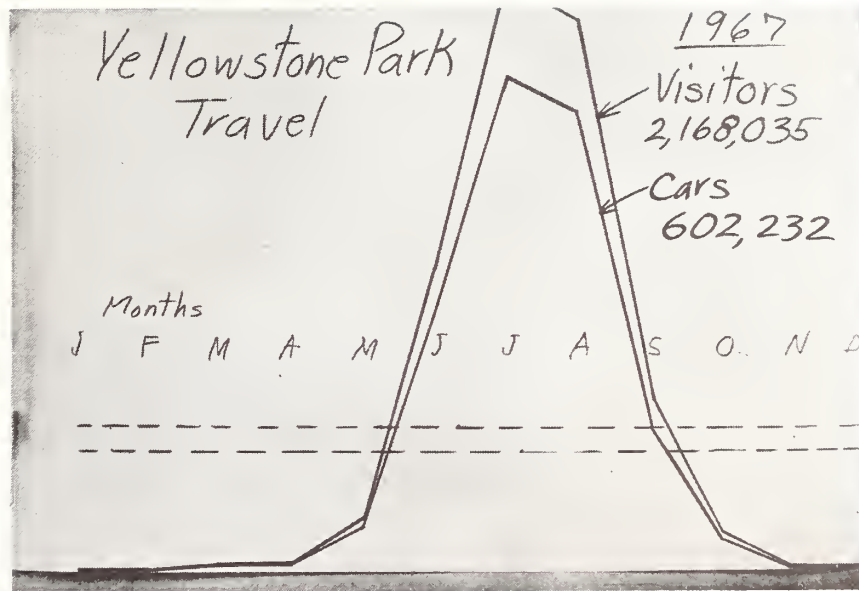 Yellowstone Park
Travel
1967
Visitors
2,168,035
Cars
602,232
Months
J F M A M J J A S O N D